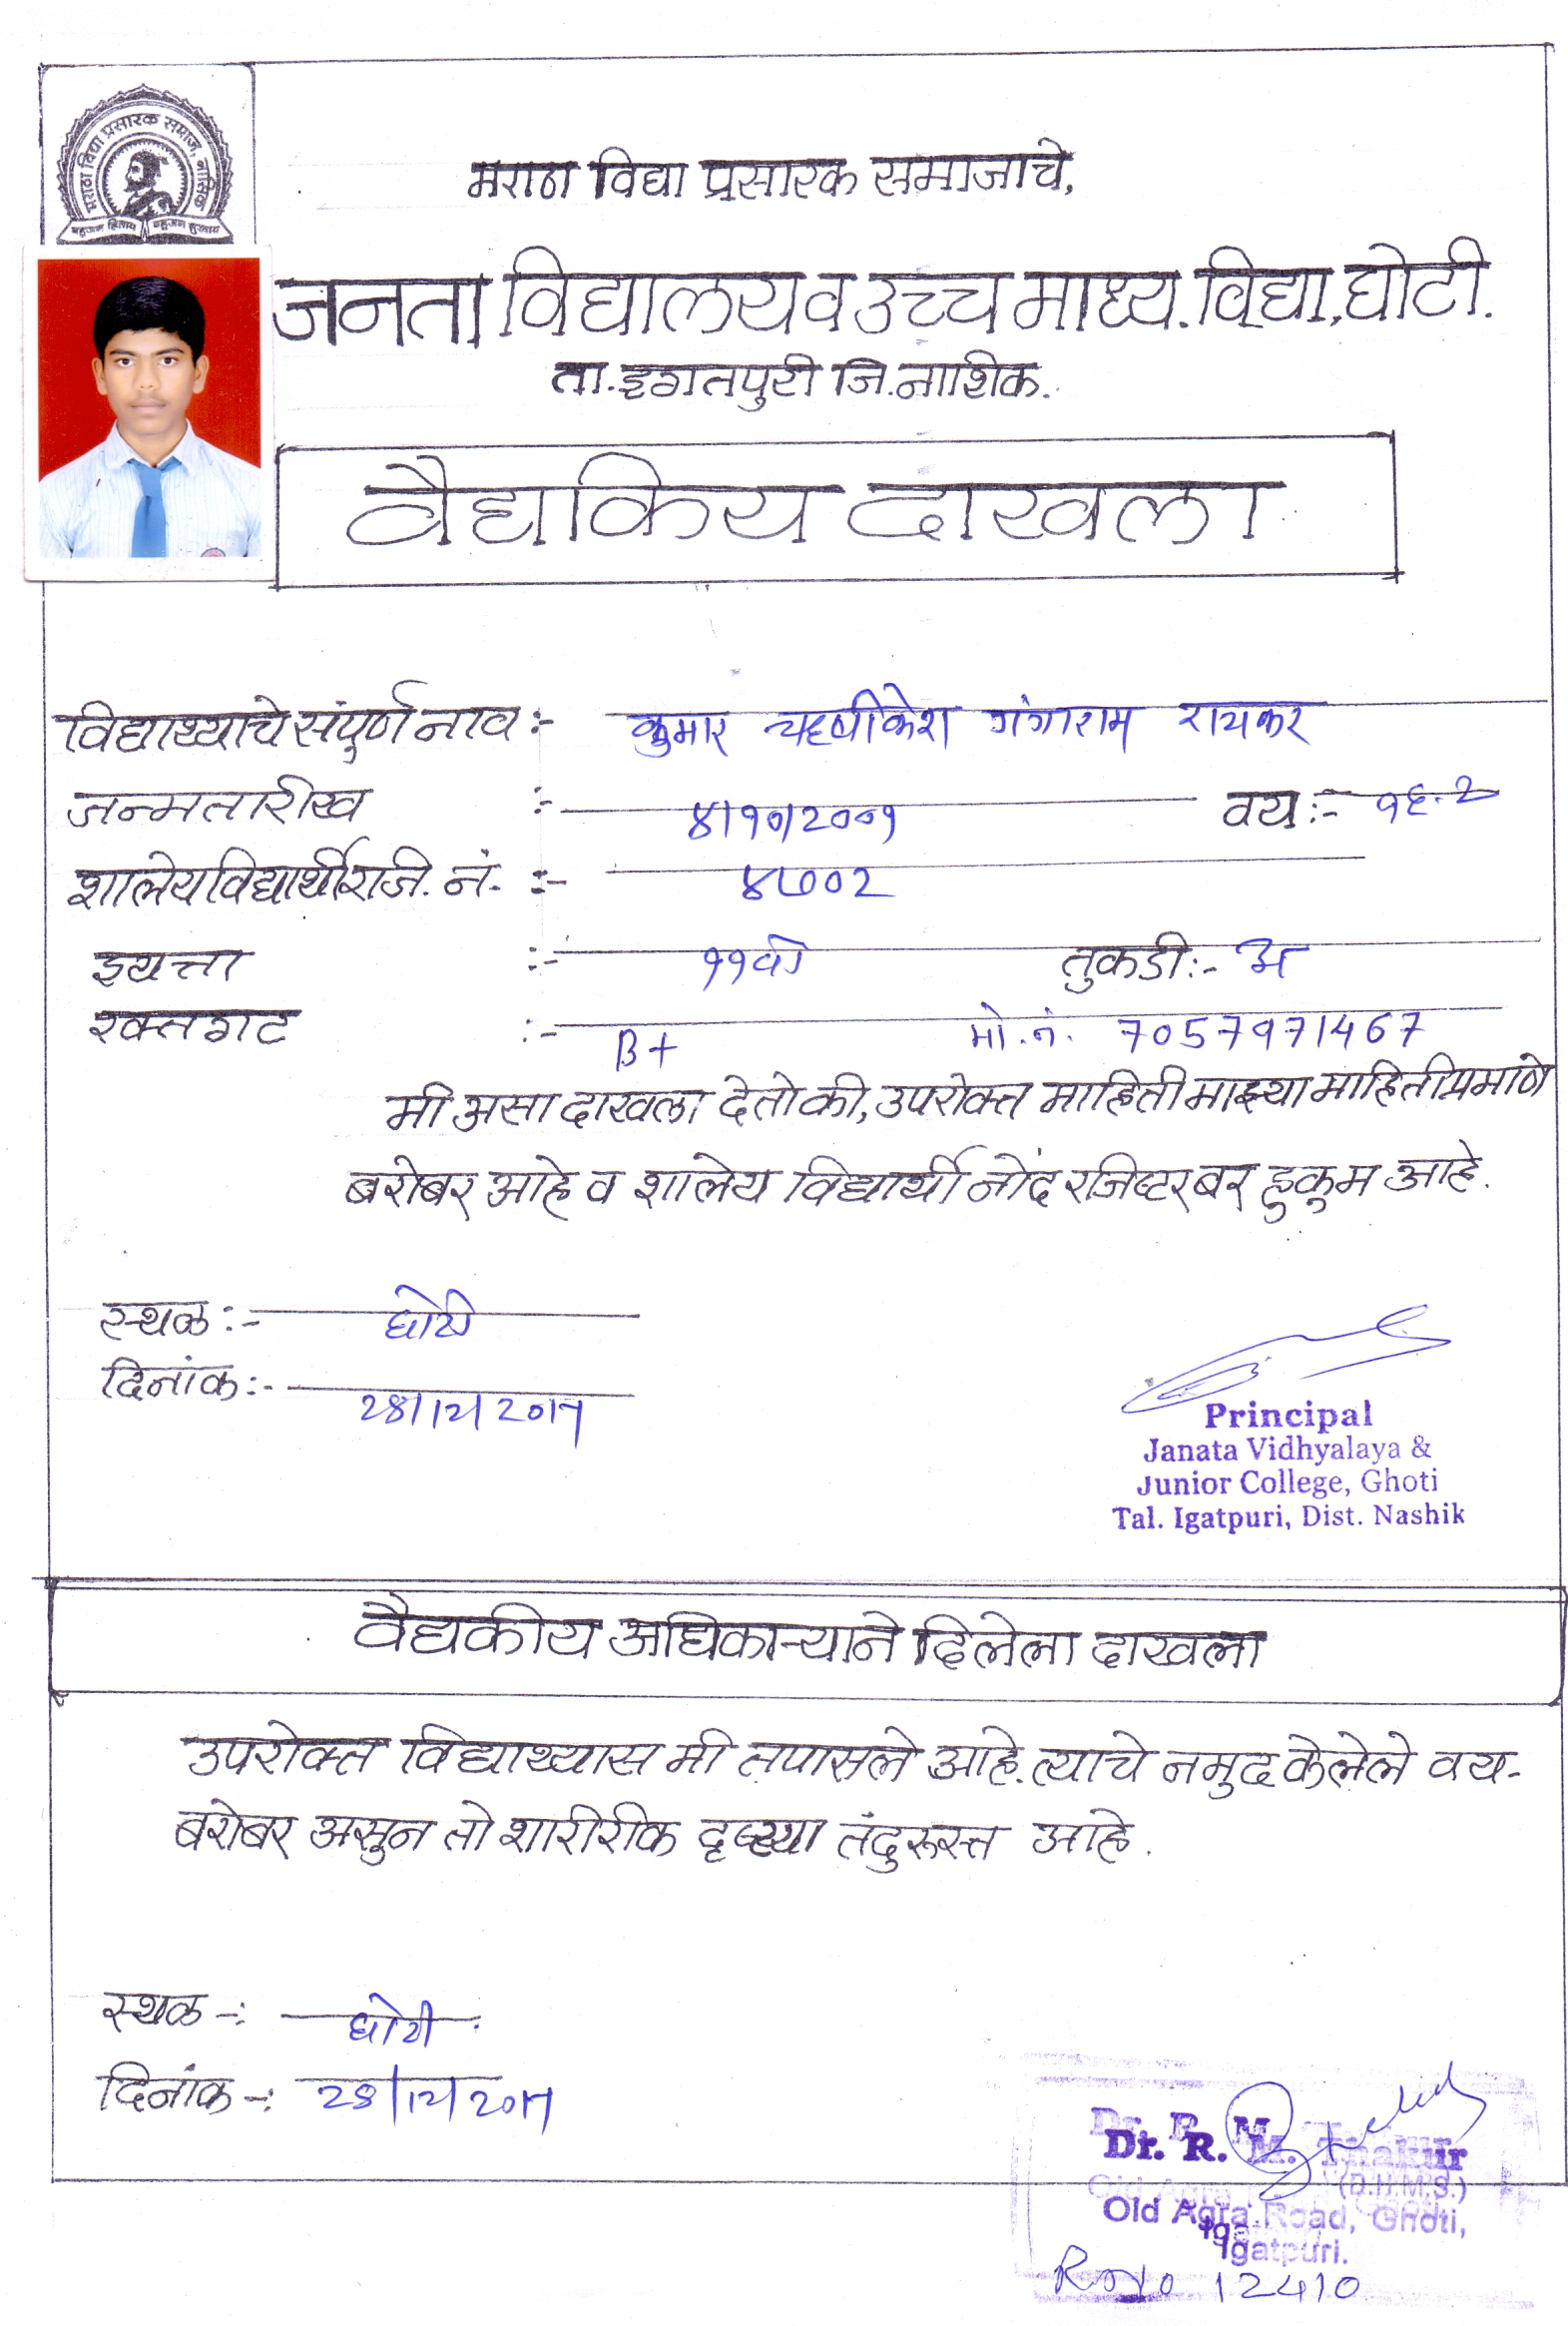 मराठा विद्या प्रसारक समाज, नाशिक
बहुजन हिताय बहुजन सुखाय
मराठा विद्या प्रसारक समाजाचे,
जनता विद्यालय व उच्च माध्य. विद्या, घोटी.
ता. इगतपुरी जि. नाशिक.
वैद्यकिय दाखला
विद्यार्थ्याचे संपुर्ण नाव :- कुमार ऋषीकेश गंगाराम रायकर
जन्मतारीख :- ४/१०/२००१ वय :- १६.२
शालेय विद्यार्थी रजि. नं. :- ४७०२
इयत्ता :- ११वी तुकडी :- अ
रक्तगट :- B+ मो. नं. 7057971467
मी असा दाखला देतो की, उपरोक्त माहिती माझ्या माहितीप्रमाणे
बरोबर आहे व शालेय विद्यार्थी नोंद रजिष्टरबर हुकुम आहे.
स्थळ :- घोटी
दिनांक :- 28/12/2017
Principal
Janata Vidhyalaya &
Junior College, Ghoti
Tal. Igatpuri, Dist. Nashik
वैद्यकीय अधिकाऱ्याने दिलेला दाखला
उपरोक्त विद्यार्थ्यास मी तपासले आहे. त्याचे नमुद केलेले वय-
बरोबर असुन तो शारीरीक दृष्ट्या तंदुरूस्त आहे.
स्थळ -: घोटी
दिनांक -: 28/12/2017
Dr. R. M. Thakur
(D.H.M.S.)
Old Agra Road, Ghoti,
Igatpuri.
12410